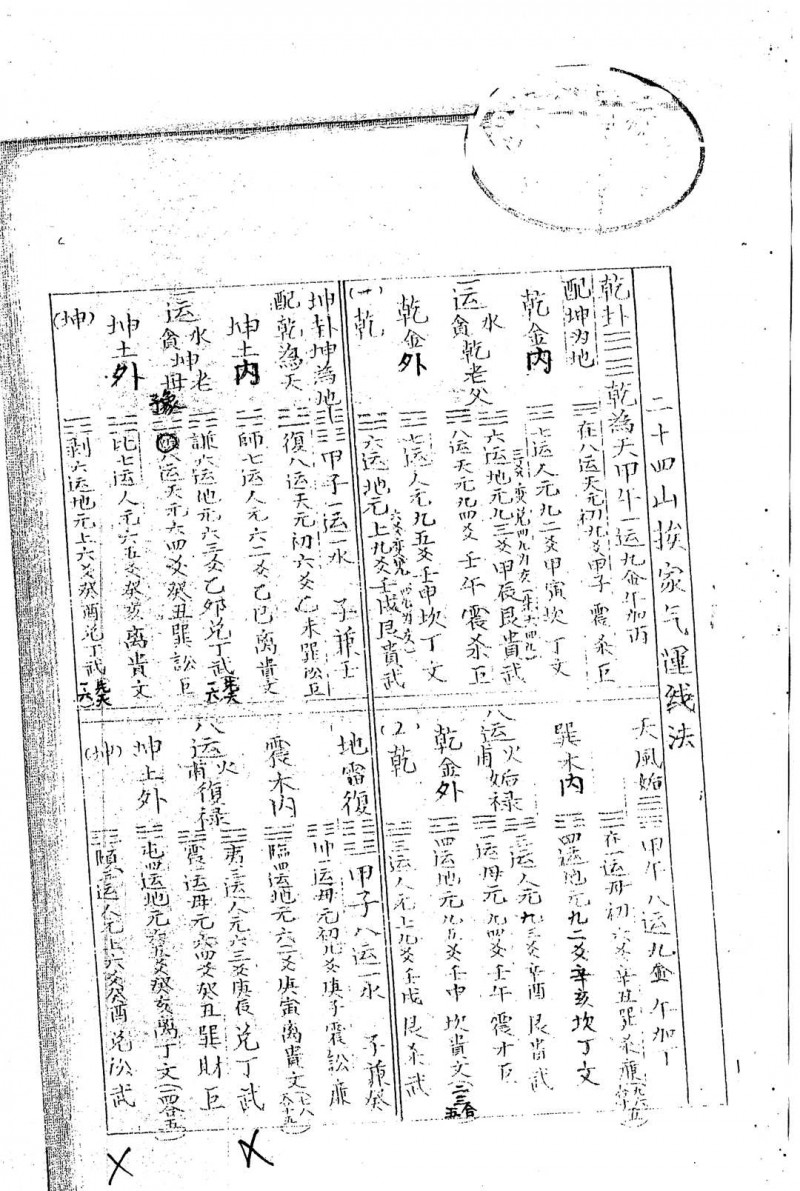 二十四山挨家气運线法
乾卦 乾為天甲午一运九金午加丙
配坤为地
在八运天元初九爻甲子 震杀巨
乾金内
七运人元九二爻甲寅坎 丁文
六运地元九三爻甲辰艮貴武
水
运貪乾老父
八运天元九四爻 壬午 震杀巨
乾金外
七运人元九五爻壬申坎丁文
(一)乾
六运地元上九爻壬戌艮貴武
天風姤 甲午八运九金 午加丁
在一运母初六爻辛丑巽杀廉
巽木内
四运地元九二爻辛亥坎丁文
三运人元九三爻辛酉艮貴武
火
八运甫姤禄
一运母元九四爻壬午震才巨
乾金外
四运地元九五爻壬申坎貴文(二三合五)
(2)乾
三运人元上九爻壬戌艮杀武
坤卦坤為地 甲子一运一水 子兼壬
配乾為天
復八运天元初六爻乙未巽讼巨
坤土内
師七运人元六二爻乙巳离貴文
謙六运地元六三爻乙卯兑丁武
水坤老
运貪坤母
豫
八运天元六四爻癸丑巽訟巨
坤土外
比七运人元六五爻癸亥离貴文
(坤)
剥六运地元上六爻癸酉兑丁武
地雷復 甲子八运一水 子兼癸
坤一运母元初九爻庚子震訟廉
震木内
臨四运地元六二爻庚寅离貴文
夷三运人元六三爻庚辰兑丁武
火
八运甫復禄
震一运母元六四爻癸丑巽財巨
坤土外
屯四运地元六五爻癸亥离丁文(一四合五)
(坤)
頤三运人元上六爻癸酉兑訟武